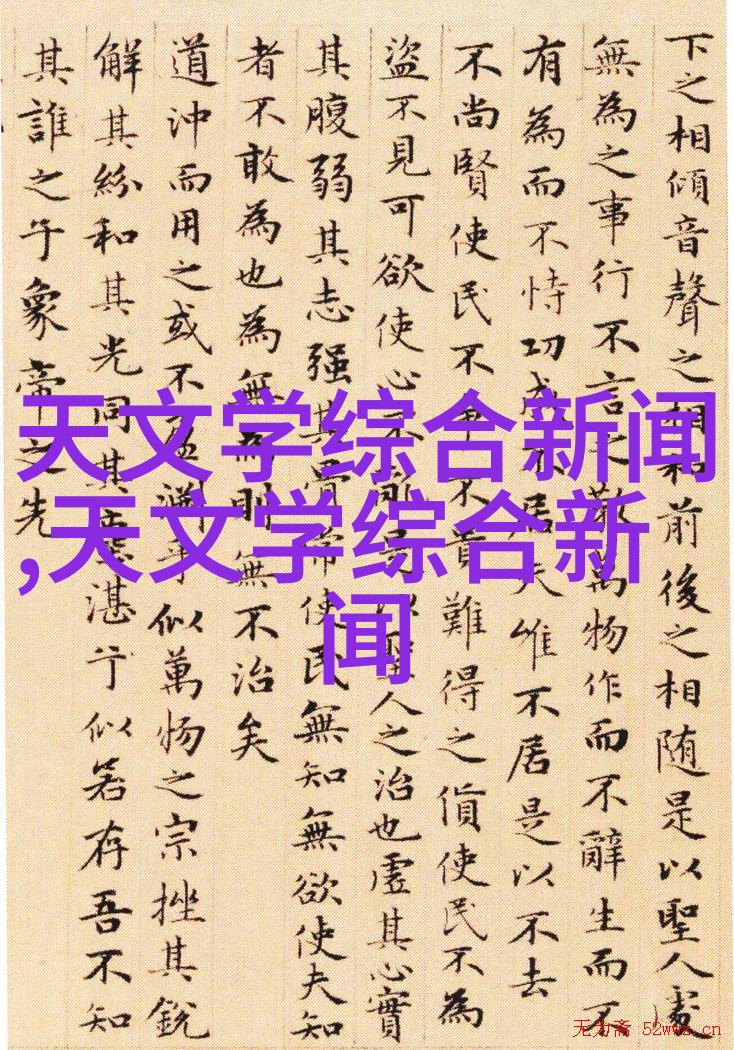 下之相傾音聲之相和前後之相随是以聖人處
無為之事行不言之教萬物作而不辭生而不
有為而不恃功成不居夫唯不居是以不去
不尚賢使民不爭不貴難得之貨使民不為
盜不見可欲使心不亂是以聖人之治也虛其心實
其腹弱其志强其骨常使民無知無欲使夫知
者不敢為也為無為則無不治矣
道沖而用之或不盈淵乎似萬物之宗挫其銳
解其紛和其光同其塵湛兮似若存吾不知
其誰之子象帝之先
天文学综合新闻
,天文学综合新
闻
无为斋 52wwz.cn